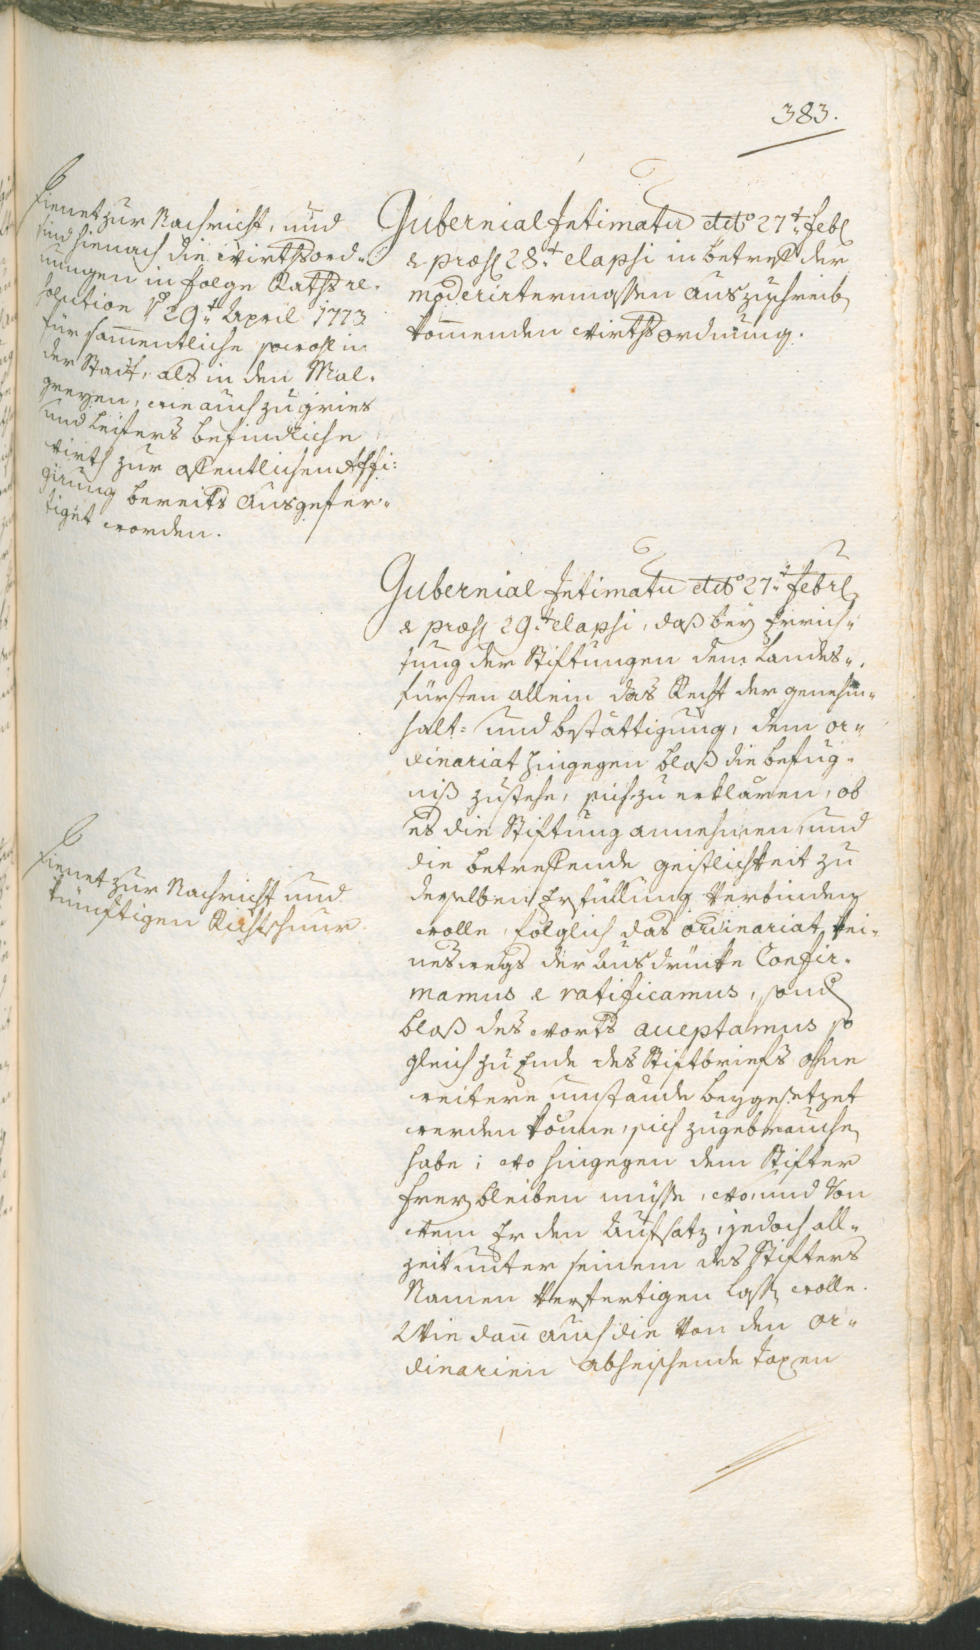 383.
Dienet zur Nachricht, und
sind hienach die Wirthsord-
nungen in folge Rathsre-
solution de 29t April 1773
für sammentliche sowohl in
der Stadt, als in den Mal-
greyen, wie auch zu Gries
und Leifers befindliche
Wirth zur offentlichen Affi-
girung bereits ausgefer-
tiget worden.
Gubernial Intimatum ddto 27t Feb.
& præs. 28t elapsi in betref der
moderirtermassen auszuschreiben
kommenden Wirthsordnung.
Gubernial Intimatum ddto 27t Febr.
& præs. 29t elapsi, daß bey Errich-
tung der Stiftungen dem Landes-
fürsten allein das Recht der genehm-
halt- und bestättigung, dem or-
dinariat hingegen bloß die befug-
niß zustehe, sich zu erklären, ob
es die Stiftung annehmen, und
die betreffende geistlichkeit zu
derselben Erfüllung verbinden
wolle, folglich das ordinariat kei-
neswegs der ausdrücke Confir-
mamus & ratificamus, sond.
bloß des worts acceptamus so
gleich zu Ende des Stiftbriefs ohne
weitere umstände beygesetzet
werden könne, sich zugebrauchen
habe; wo hingegen dem Stifter
frey bleiben müsse, wo, und von
wem Er den Aufsatz, jedoch all-
zeit unter seinem des Stifters
Namen verfertigen lassen wolle.
Wie dann auch die von den or-
dinarien abheischende Taxen
Dienet zur Nachricht und
künftigen Richtschnur.